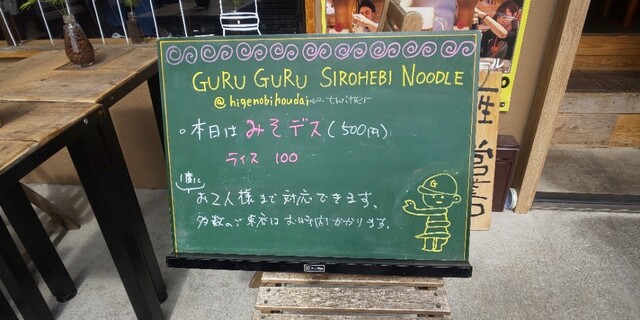 GURU GURU SIROHEBI NOODLE
@higenobihoudai ←a twitter
・本日は みそデス (500円)
ライス 100
1度に
お2人様まで対応できます。
多数のご来店はお時間かかります。
G
営業